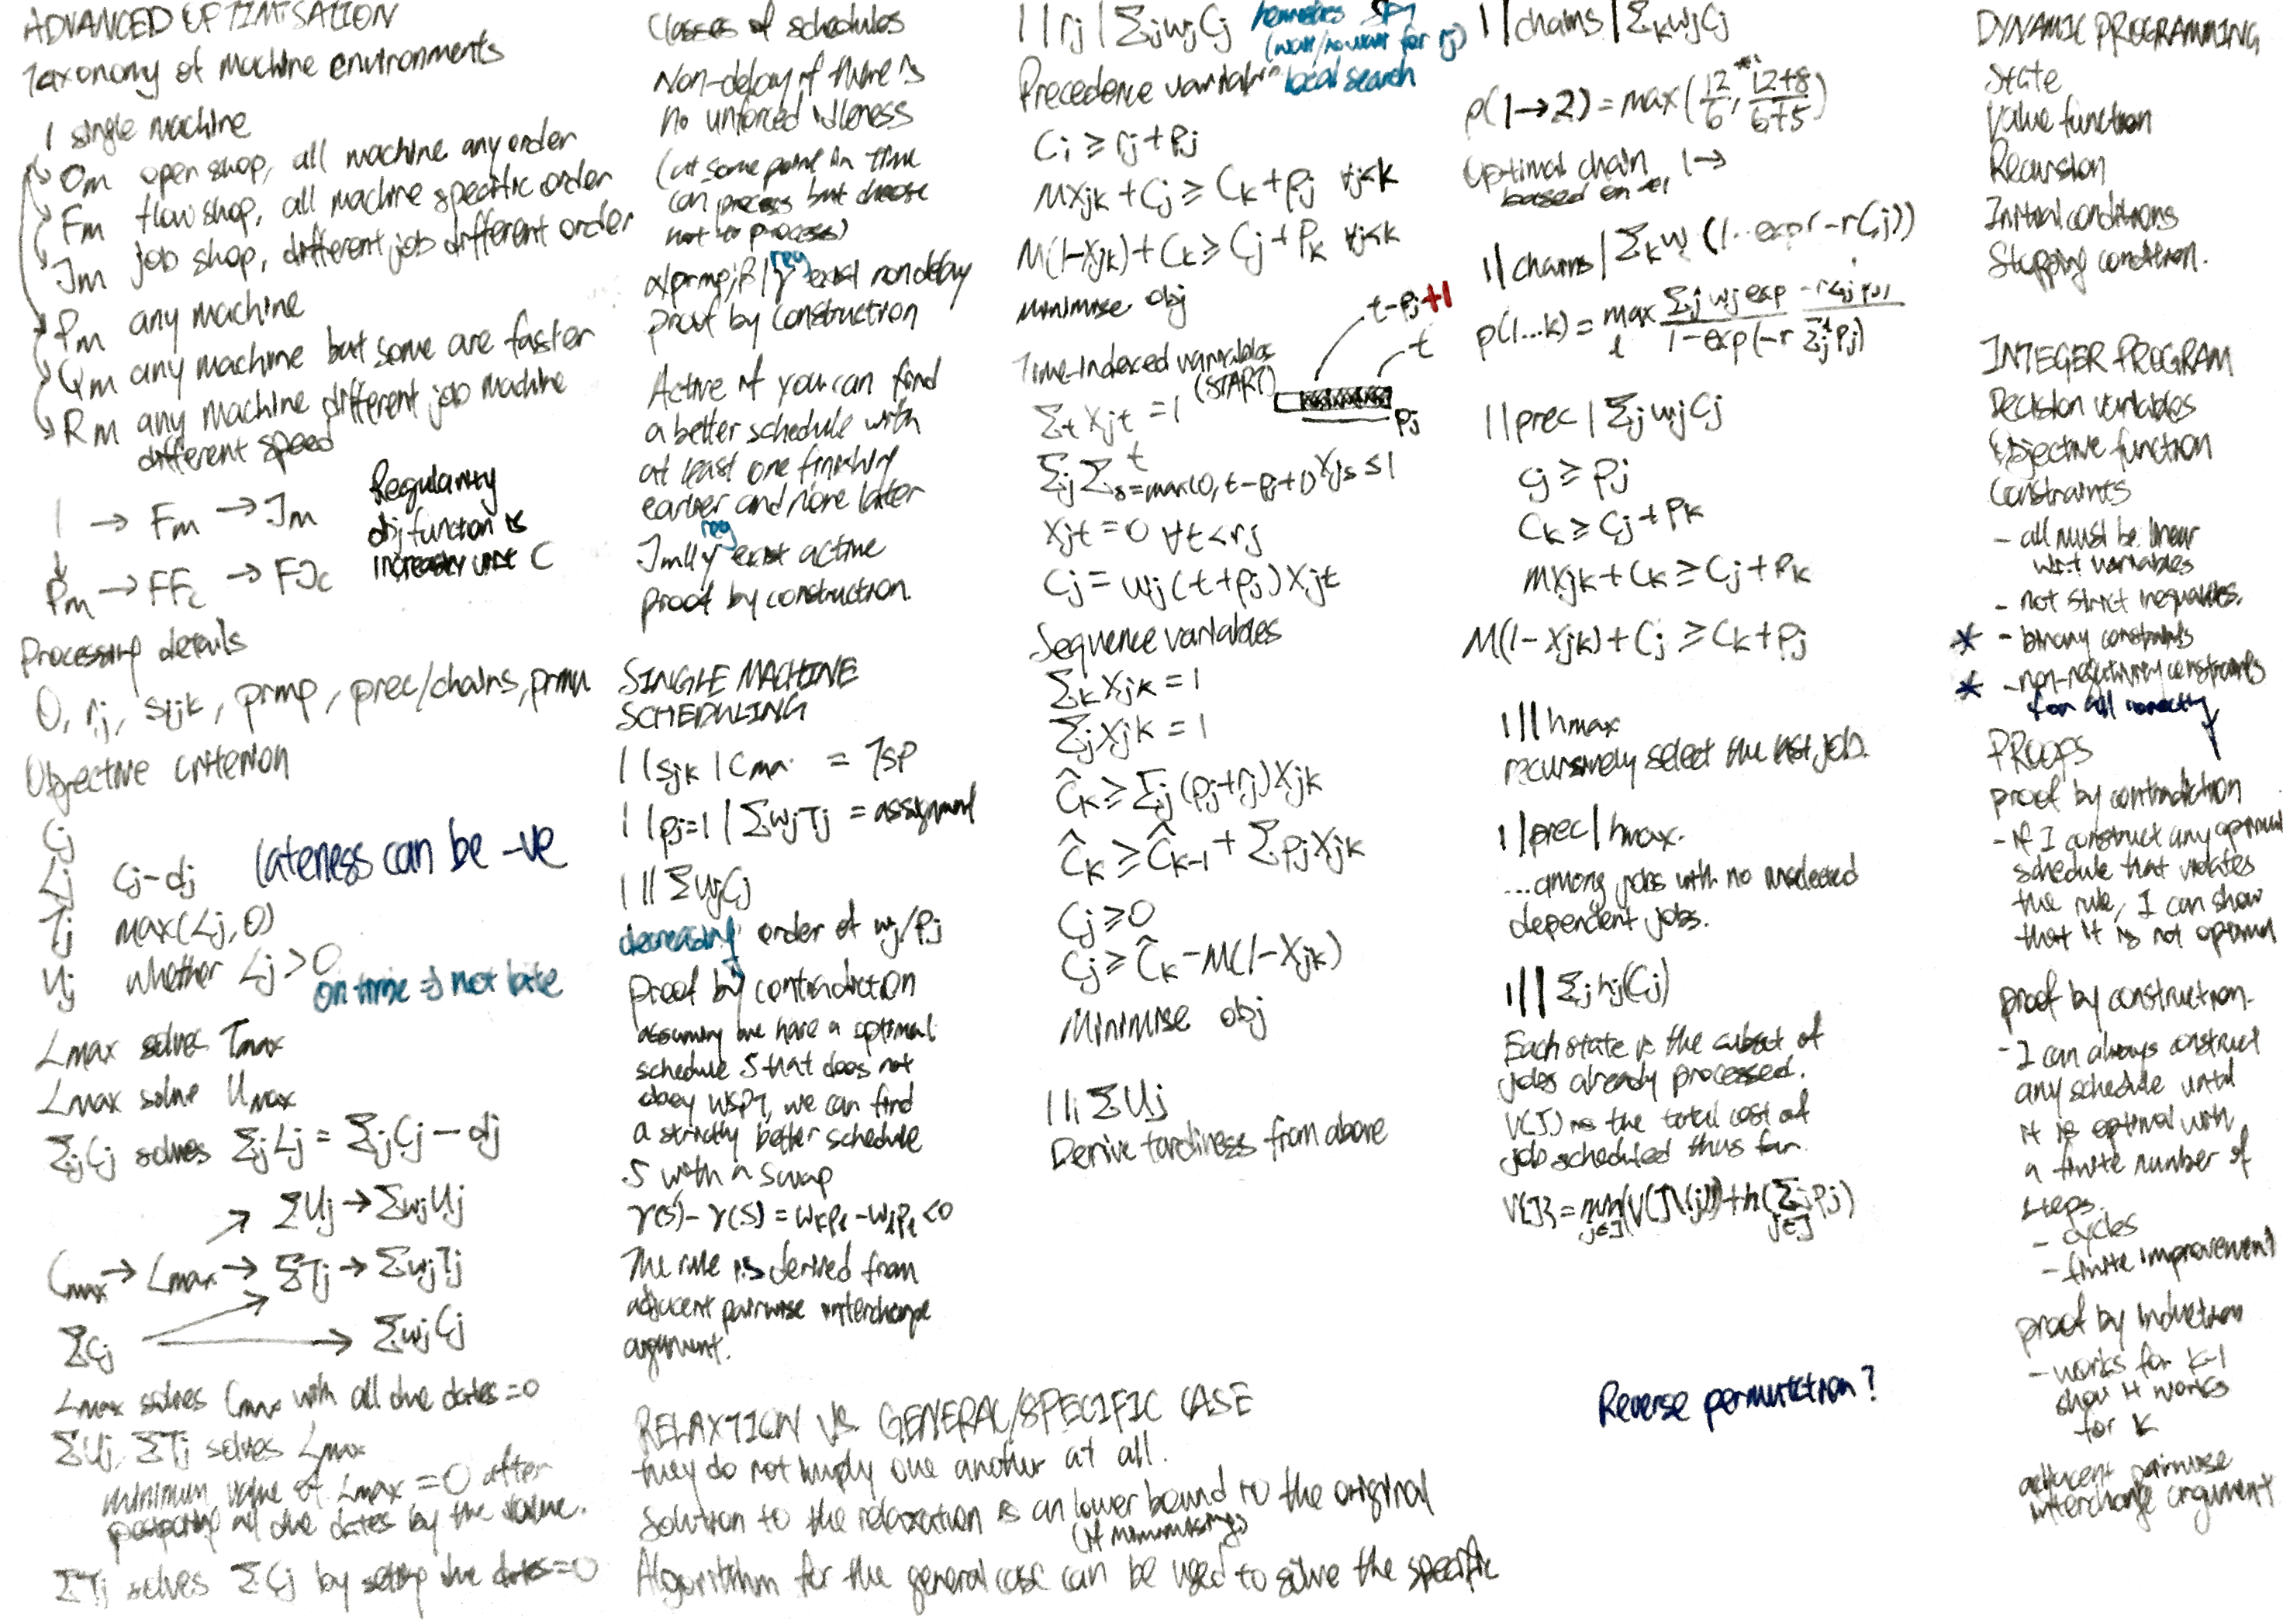 ADVANCED OPTIMISATION
Taxonomy of machine environments
1 single machine
Om open shop, all machine any order
Fm flow shop, all machine specific order
Jm job shop, different job different order
Pm any machine
Qm any machine but some are faster
Rm any machine different job machine
different speed
1 → Fm → Jm
Pm → FFc → FJc
Regularity
obj function is
increasing wrt C
Processing details
0, rj, sijk, prmp, prec/chains, prmu
Objective criterion
Cj
Lj Cj-dj
lateness can be -ve
Tj max(Lj, 0)
Uj whether Lj > 0
on time => not late
Lmax solves Tmax
Lmax solve Umax
ΣjCj solves ΣjLj = ΣjCj - dj
ΣUj → ΣwjUj
Cmax → Lmax → ΣTj → ΣwjTj
ΣCj → ΣwjCj
Lmax solves Cmax with all due dates=0
ΣUj, ΣTj solves Lmax
minimum value of Lmax = 0 after
postponing all due dates by the value.
ΣTj solves ΣCj by setting due dates=0
Classes of schedules
Non-delay if there is
no unforced idleness
(at some point in time
can process but choose
not to process)
α|prmp,β|γ reg exist nondelay
proof by construction
Active if you can find
a better schedule with
at least one finishing
earlier and none later
Jm||γ reg exist active
proof by construction.
SINGLE MACHINE
SCHEDULING
1|sjk|Cmax = TSP
1|pj=1|ΣwjTj = assignment
1||ΣwjCj
decreasing order of wj/pj
Proof by contradiction
assuming we have a optimal
schedule S that does not
obey WSPT, we can find
a strictly better schedule
S with a swap
γ(S')-γ(S) = wkpl-wlpk<0
The rule is derived from
adjacent pairwise interchange
argument.
RELAXTION VS GENERAL/SPECIFIC CASE
they do not imply one another at all.
Solution to the relaxation is an lower bound to the original
(if minimising)
Algorithm for the general case can be used to solve the specific
1|rj|ΣjwjCj
heuristics SPT
(wait/no wait for rj)
local search
Precedence variables
Cj ≥ rj + pj
MXjk + Cj ≥ Ck + pj ∀j<k
M(1-Xjk) + Ck ≥ Cj + Pk ∀j<k
minimise obj
t-pj+1
t
pj
Time-indexed variables
(START)
ΣtXjt = 1
ΣjΣt s=max(0, t-pj+1) Xjs ≤ 1
Xjt = 0 ∀t<rj
Cj = wj(t+pj)Xjt
Sequence variables
ΣkXjk = 1
ΣjXjk = 1
Ĉk ≥ Σj(pj+rj)Xjk
Ĉk ≥ Ĉk-1 + ΣpjXjk
Cj ≥ 0
Cj ≥ Ĉk - M(1-Xjk)
Minimise obj
1||ΣUj
Derive tardiness from above
1|chains|ΣkwjCj
ρ(1→2) = max(12/6, 12+8/6+5)
Optimal chain 1→
based on
1|chains|Σkw(1-exp(-rCj))
ρ(1...k) = max
1|prec|ΣjwjCj
Cj ≥ pj
Ck ≥ Cj + Pk
MXjk + Ck ≥ Cj + Pk
M(1-Xjk) + Cj ≥ Ck + Pj
1||hmax
recursively select the last job.
1|prec|hmax.
...among jobs with no unselected
dependent jobs.
1||Σjhj(Cj)
Each state is the subset of
jobs already processed.
V(J) is the total cost of
job scheduled thus far.
V{J} = min j∈J (V(J\{j})) + h(Σj∈J pj)
Reverse permutation?
DYNAMIC PROGRAMMING
State
Value function
Recursion
Initial conditions
Stopping condition.
INTEGER PROGRAM
Decision variables
Objective function
Constraints
- all must be linear
wrt variables
- not strict inequalities.
* - binary constraints
* - non-negativity constraints
for all
PROOFS
proof by contradiction
- if I construct any optimum
schedule that violates
the rule, I can show
that it is not optimal
proof by construction-
- I can always construct
any schedule until
it is optimal with
a finite number of
steps.
- cycles
- finite improvement
proof by induction
- works for k-1
show it works
for k
adjacent pairwise
interchange argument